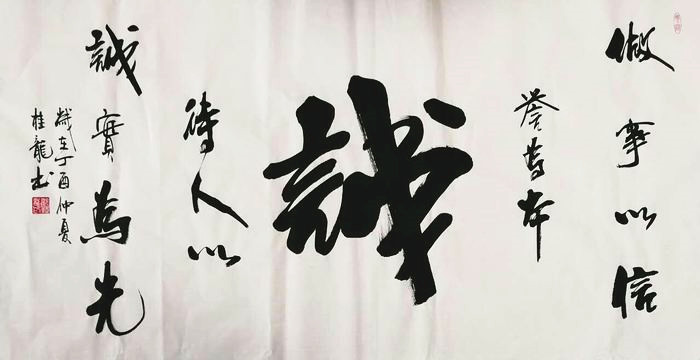 做事以信
譽為本
誠
待人以
誠實為先
歲在丁酉仲夏
桂龍书